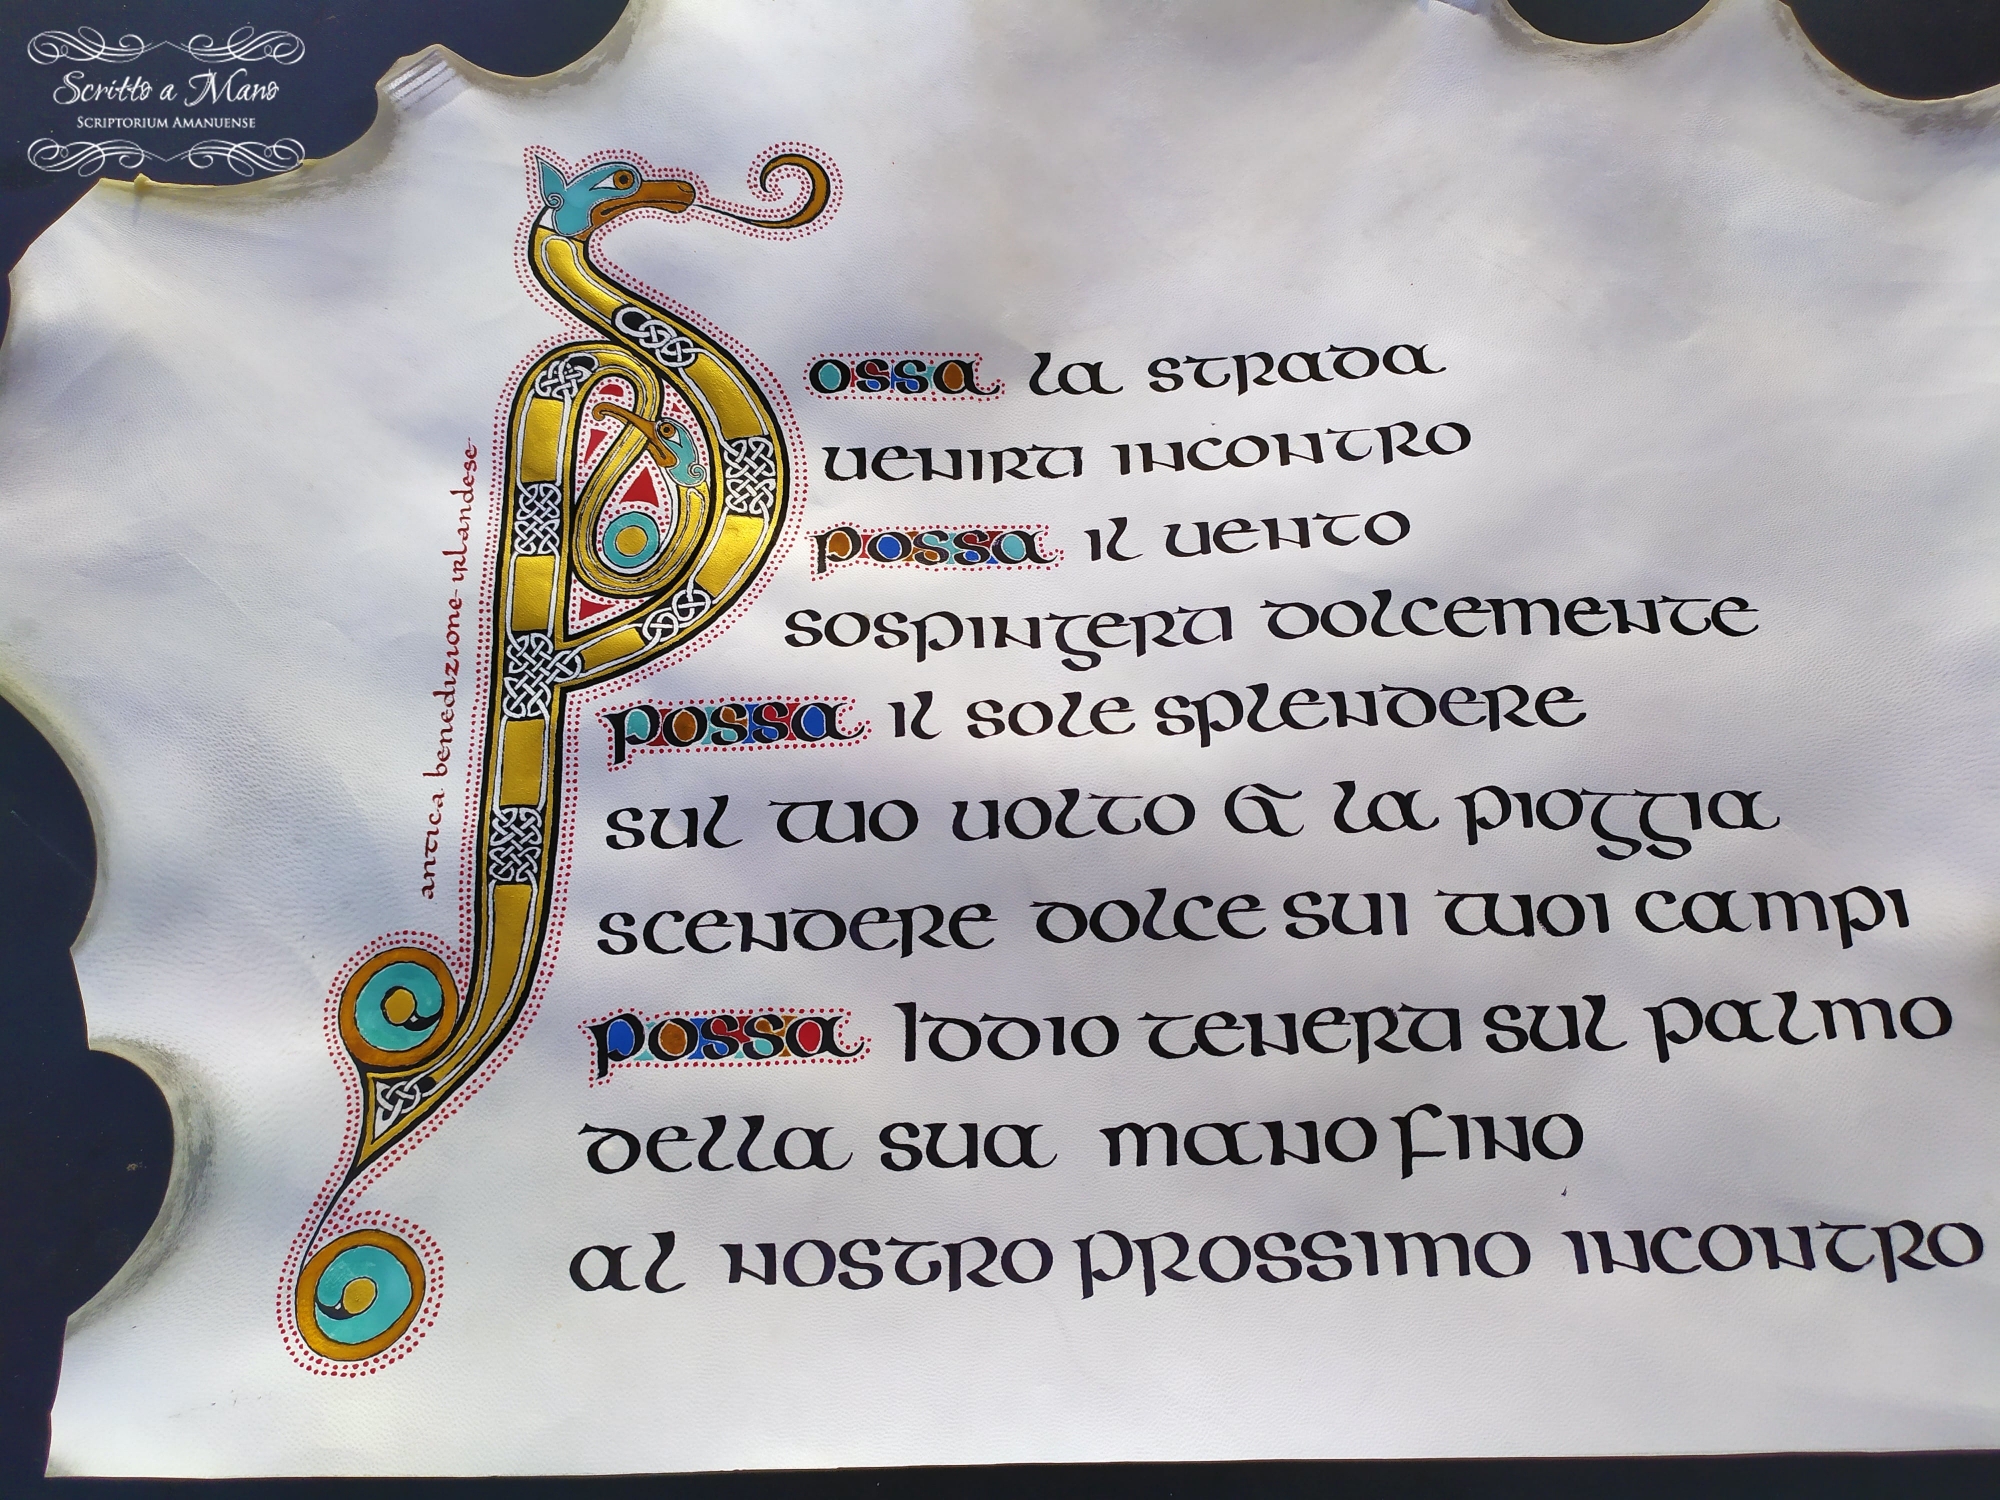 Scritto a Mano
SCRIPTORIUM AMANUENSE
antica benedizione irlandese
Possa la strada
venirti incontro
possa il vento
sospingerti dolcemente
possa il sole splendere
sul tuo volto & la pioggia
scendere dolce sui tuoi campi
possa Iddio tenerti sul palmo
della sua mano fino
al nostro prossimo incontro